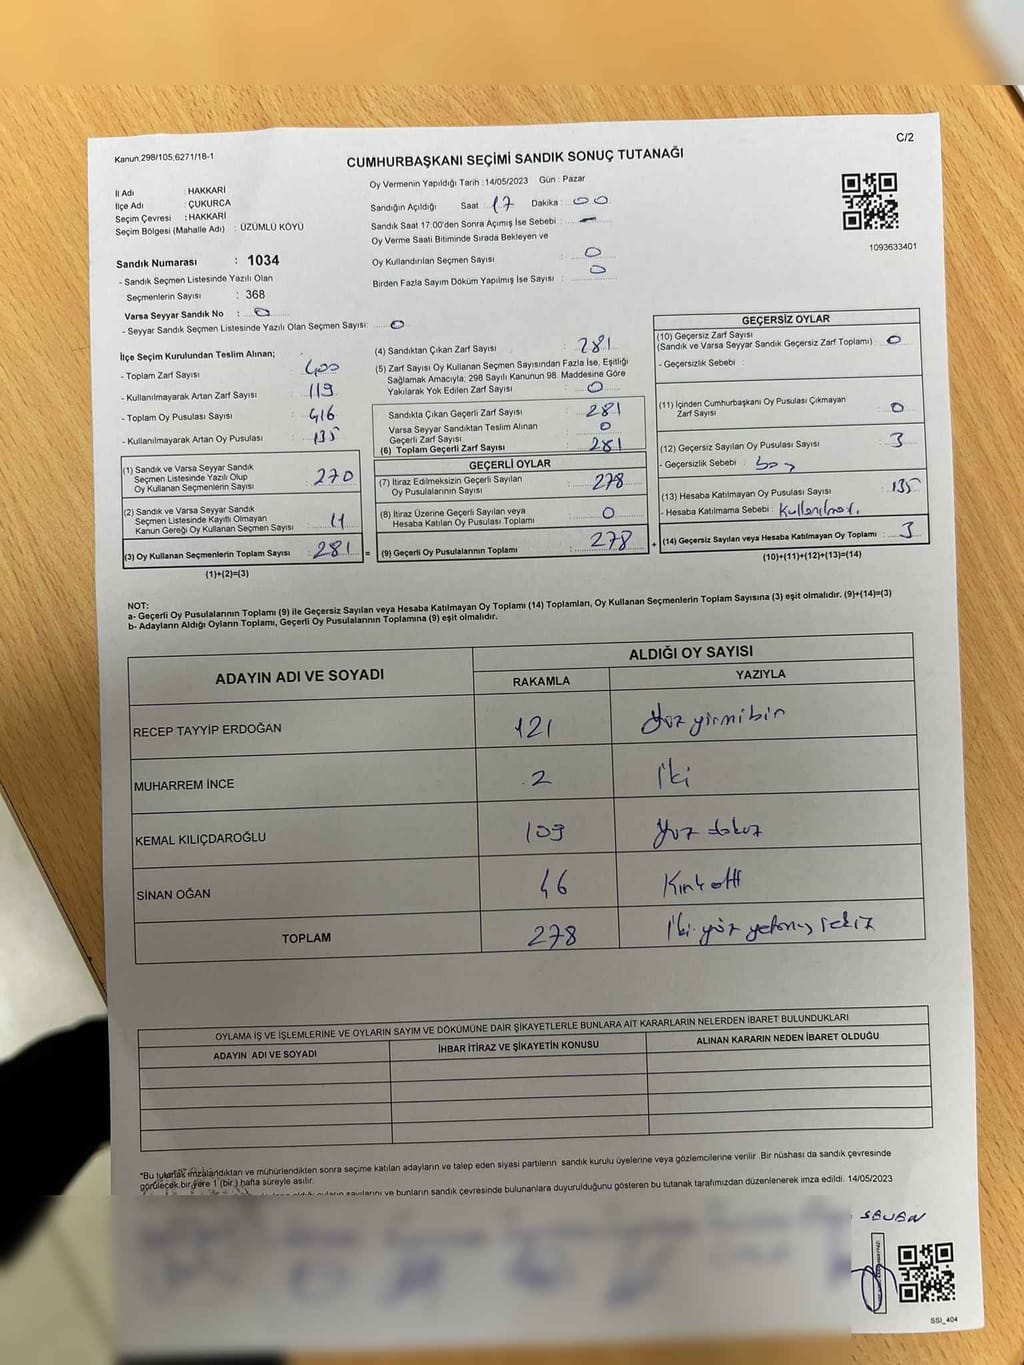 Kanun,298/105,6271/18-1
C/2
CUMHURBAŞKANI SEÇİMİ SANDIK SONUÇ TUTANAĞI
İl Adı : HAKKARİ
İlçe Adı : ÇUKURCA
Seçim Çevresi : HAKKARİ
Seçim Bölgesi (Mahalle Adı) : ÜZÜMLÜ KÖYÜ
Oy Vermenin Yapıldığı Tarih :14/05/2023 Gün : Pazar
Sandığın Açıldığı Saat 17 Dakika : 00
Sandık Saat 17:00'den Sonra Açımış İse Sebebi : —
Oy Verme Saati Bitiminde Sırada Bekleyen ve
Oy Kullandırılan Seçmen Sayısı 0
Birden Fazla Sayım Döküm Yapılmış İse Sayısı : 0
1093633401
Sandık Numarası : 1034
- Sandık Seçmen Listesinde Yazılı Olan
Seçmenlerin Sayısı : 368
Varsa Seyyar Sandık No : 0
- Seyyar Sandık Seçmen Listesinde Yazılı Olan Seçmen Sayısı: 0
İlçe Seçim Kurulundan Teslim Alınan;
- Toplam Zarf Sayısı : 400
- Kullanılmayarak Artan Zarf Sayısı : 119
- Toplam Oy Pusulası Sayısı : 416
- Kullanılmayarak Artan Oy Pusulası : 135
(1) Sandık ve Varsa Seyyar Sandık
Seçmen Listesinde Yazılı Olup
Oy Kullanan Seçmenlerin Sayısı : 270
(2) Sandık ve Varsa Seyyar Sandık
Seçmen Listesinde Kayıtlı Olmayan
Kanun Gereği Oy Kullanan Seçmen Sayısı : 11
(3) Oy Kullanan Seçmenlerin Toplam Sayısı : 281 =
(1)+(2)=(3)
(4) Sandıktan Çıkan Zarf Sayısı : 281
(5) Zarf Sayısı Oy Kullanan Seçmen Sayısından Fazla İse, Eşitliği
Sağlamak Amacıyla, 298 Sayılı Kanunun 98. Maddesine Göre
Yakılarak Yok Edilen Zarf Sayısı : 0
Sandıkta Çıkan Geçerli Zarf Sayısı : 281
Varsa Seyyar Sandıktan Teslim Alınan
Geçerli Zarf Sayısı : 0
(6) Toplam Geçerli Zarf Sayısı : 281
GEÇERLİ OYLAR
(7) İtiraz Edilmeksizin Geçerli Sayılan
Oy Pusulalarının Sayısı : 278
(8) İtiraz Üzerine Geçerli Sayılan veya
Hesaba Katılan Oy Pusulası Toplamı : 0
(9) Geçerli Oy Pusulalarının Toplamı : 278 +
GEÇERSİZ OYLAR
(10) Geçersiz Zarf Sayısı
(Sandık ve Varsa Seyyar Sandık Geçersiz Zarf Toplamı) : 0
- Geçersizlik Sebebi :
(11) İçinden Cumhurbaşkanı Oy Pusulası Çıkmayan
Zarf Sayısı : 0
(12) Geçersiz Sayılan Oy Pusulası Sayısı : 3
- Geçersizlik Sebebi : boş
(13) Hesaba Katılmayan Oy Pusulası Sayısı : 135
- Hesaba Katılmama Sebebi :
(14) Geçersiz Sayılan veya Hesaba Katılmayan Oy Toplamı : 3
(10)+(11)+(12)+(13)=(14)
NOT:
a- Geçerli Oy Pusulalarının Toplamı (9) ile Geçersiz Sayılan veya Hesaba Katılmayan Oy Toplamı (14) Toplamları, Oy Kullanan Seçmenlerin Toplam Sayısına (3) eşit olmalıdır. (9)+(14)=(3)
b- Adayların Aldığı Oyların Toplamı, Geçerli Oy Pusulalarının Toplamına (9) eşit olmalıdır.
ADAYIN ADI VE SOYADI
ALDIĞI OY SAYISI
RAKAMLA YAZIYLA
RECEP TAYYİP ERDOĞAN 121 Yüz yirmibir
MUHARREM İNCE 2 İki
KEMAL KILIÇDAROĞLU 109 Yüz dokuz
SİNAN OĞAN 46 Kırk altı
TOPLAM 278 İki yüz yetmiş sekiz
OYLAMA İŞ VE İŞLEMLERİNE VE OYLARIN SAYIM VE DÖKÜMÜNE DAİR ŞİKAYETLERLE BUNLARA AİT KARARLARIN NELERDEN İBARET BULUNDUKLARI
ADAYIN ADI VE SOYADI İHBAR İTİRAZ VE ŞİKAYETİN KONUSU ALINAN KARARIN NEDEN İBARET OLDUĞU
"Bu tutanak imzalandıktan ve mühürlendikten sonra seçime katılan adayların ve talep eden siyasi partilerin sandık kurulu üyelerine veya gözlemcilerine verilir .Bir nüshası da sandık çevresinde
görülecek bir yere 1 (bir ) hafta süreyle asılır.
oyların sayılarını ve bunların sandık çevresinde bulunanlara duyurulduğunu gösteren bu tutanak tarafımızdan düzenlenerek imza edildi. 14/05/2023
SSI_404